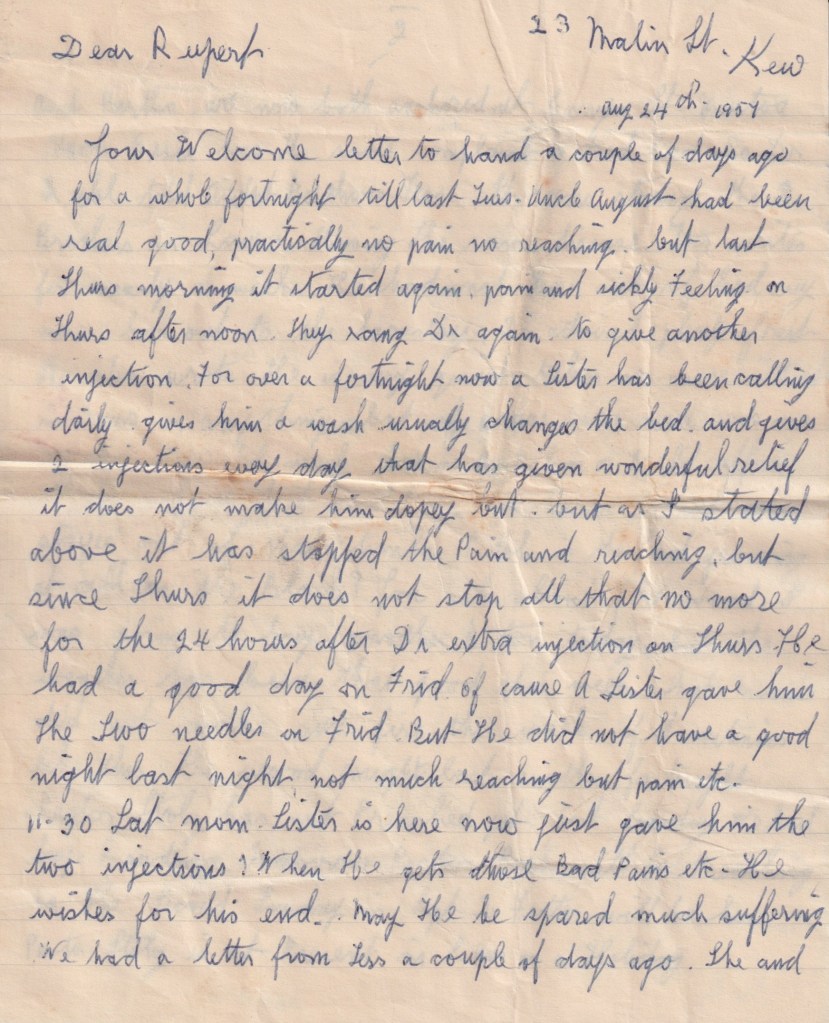 23 Malin St. Kew
Dear Rupert
Aug 24th. 1957
Your Welcome letter to hand a couple of days ago
for a whole fortnight till last Tues. Uncle August had been
real good, practically no pain no reaching. but last
Thurs morning it started again. pain and sickly Feeling on
Thurs after noon. They rang Dr again. to give another
injection. For over a fortnight now a Sister has been calling
daily. gives him a wash usually changes the bed. and gives
2 injections every day that has given wonderful relief
it does not make him dopey but. but as I stated
above it has stopped the Pain and reaching. but
since Thurs it does not stop all that no more
for the 24 hours after Dr extra injection on Thurs. He
had a good day on Frid of cause A Sister gave him
the Two needles on Frid But He did not have a good
night last night, not much reaching but pain etc.
11-30 Sat morn. Sister is here now just gave him the
two injections? When He gets those Bad Pains etc. He
wishes for his end. May He be spared much suffering
We had a letter from Tess a couple of days ago. She and